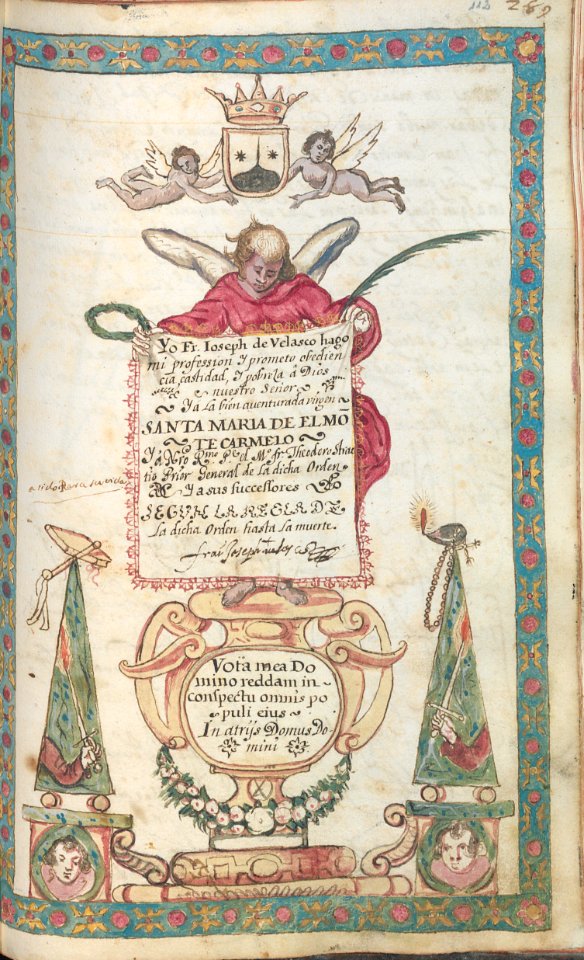 112 269
Yo Fr. Ioseph de Velasco hago
mi profession Y prometo obedien
cia, castidad, Y pobreza â Dios
nuestro Señor,
Ya la bien aventurada virgen
SANTA MARIA DE EL MÕ
TE CARMELO
Ya Nrõ Rmo Pe el Mº fr. Theodoro Strac
tio Prior General de la dicha Orden
Ya sus successores
SEGUN LA REGLA DE
la dicha Orden hasta la muerte.
frai Joseph
Vota mea Do
mino reddam in
conspectu omnis po
puli eius
In atrijs Domus Do
mini